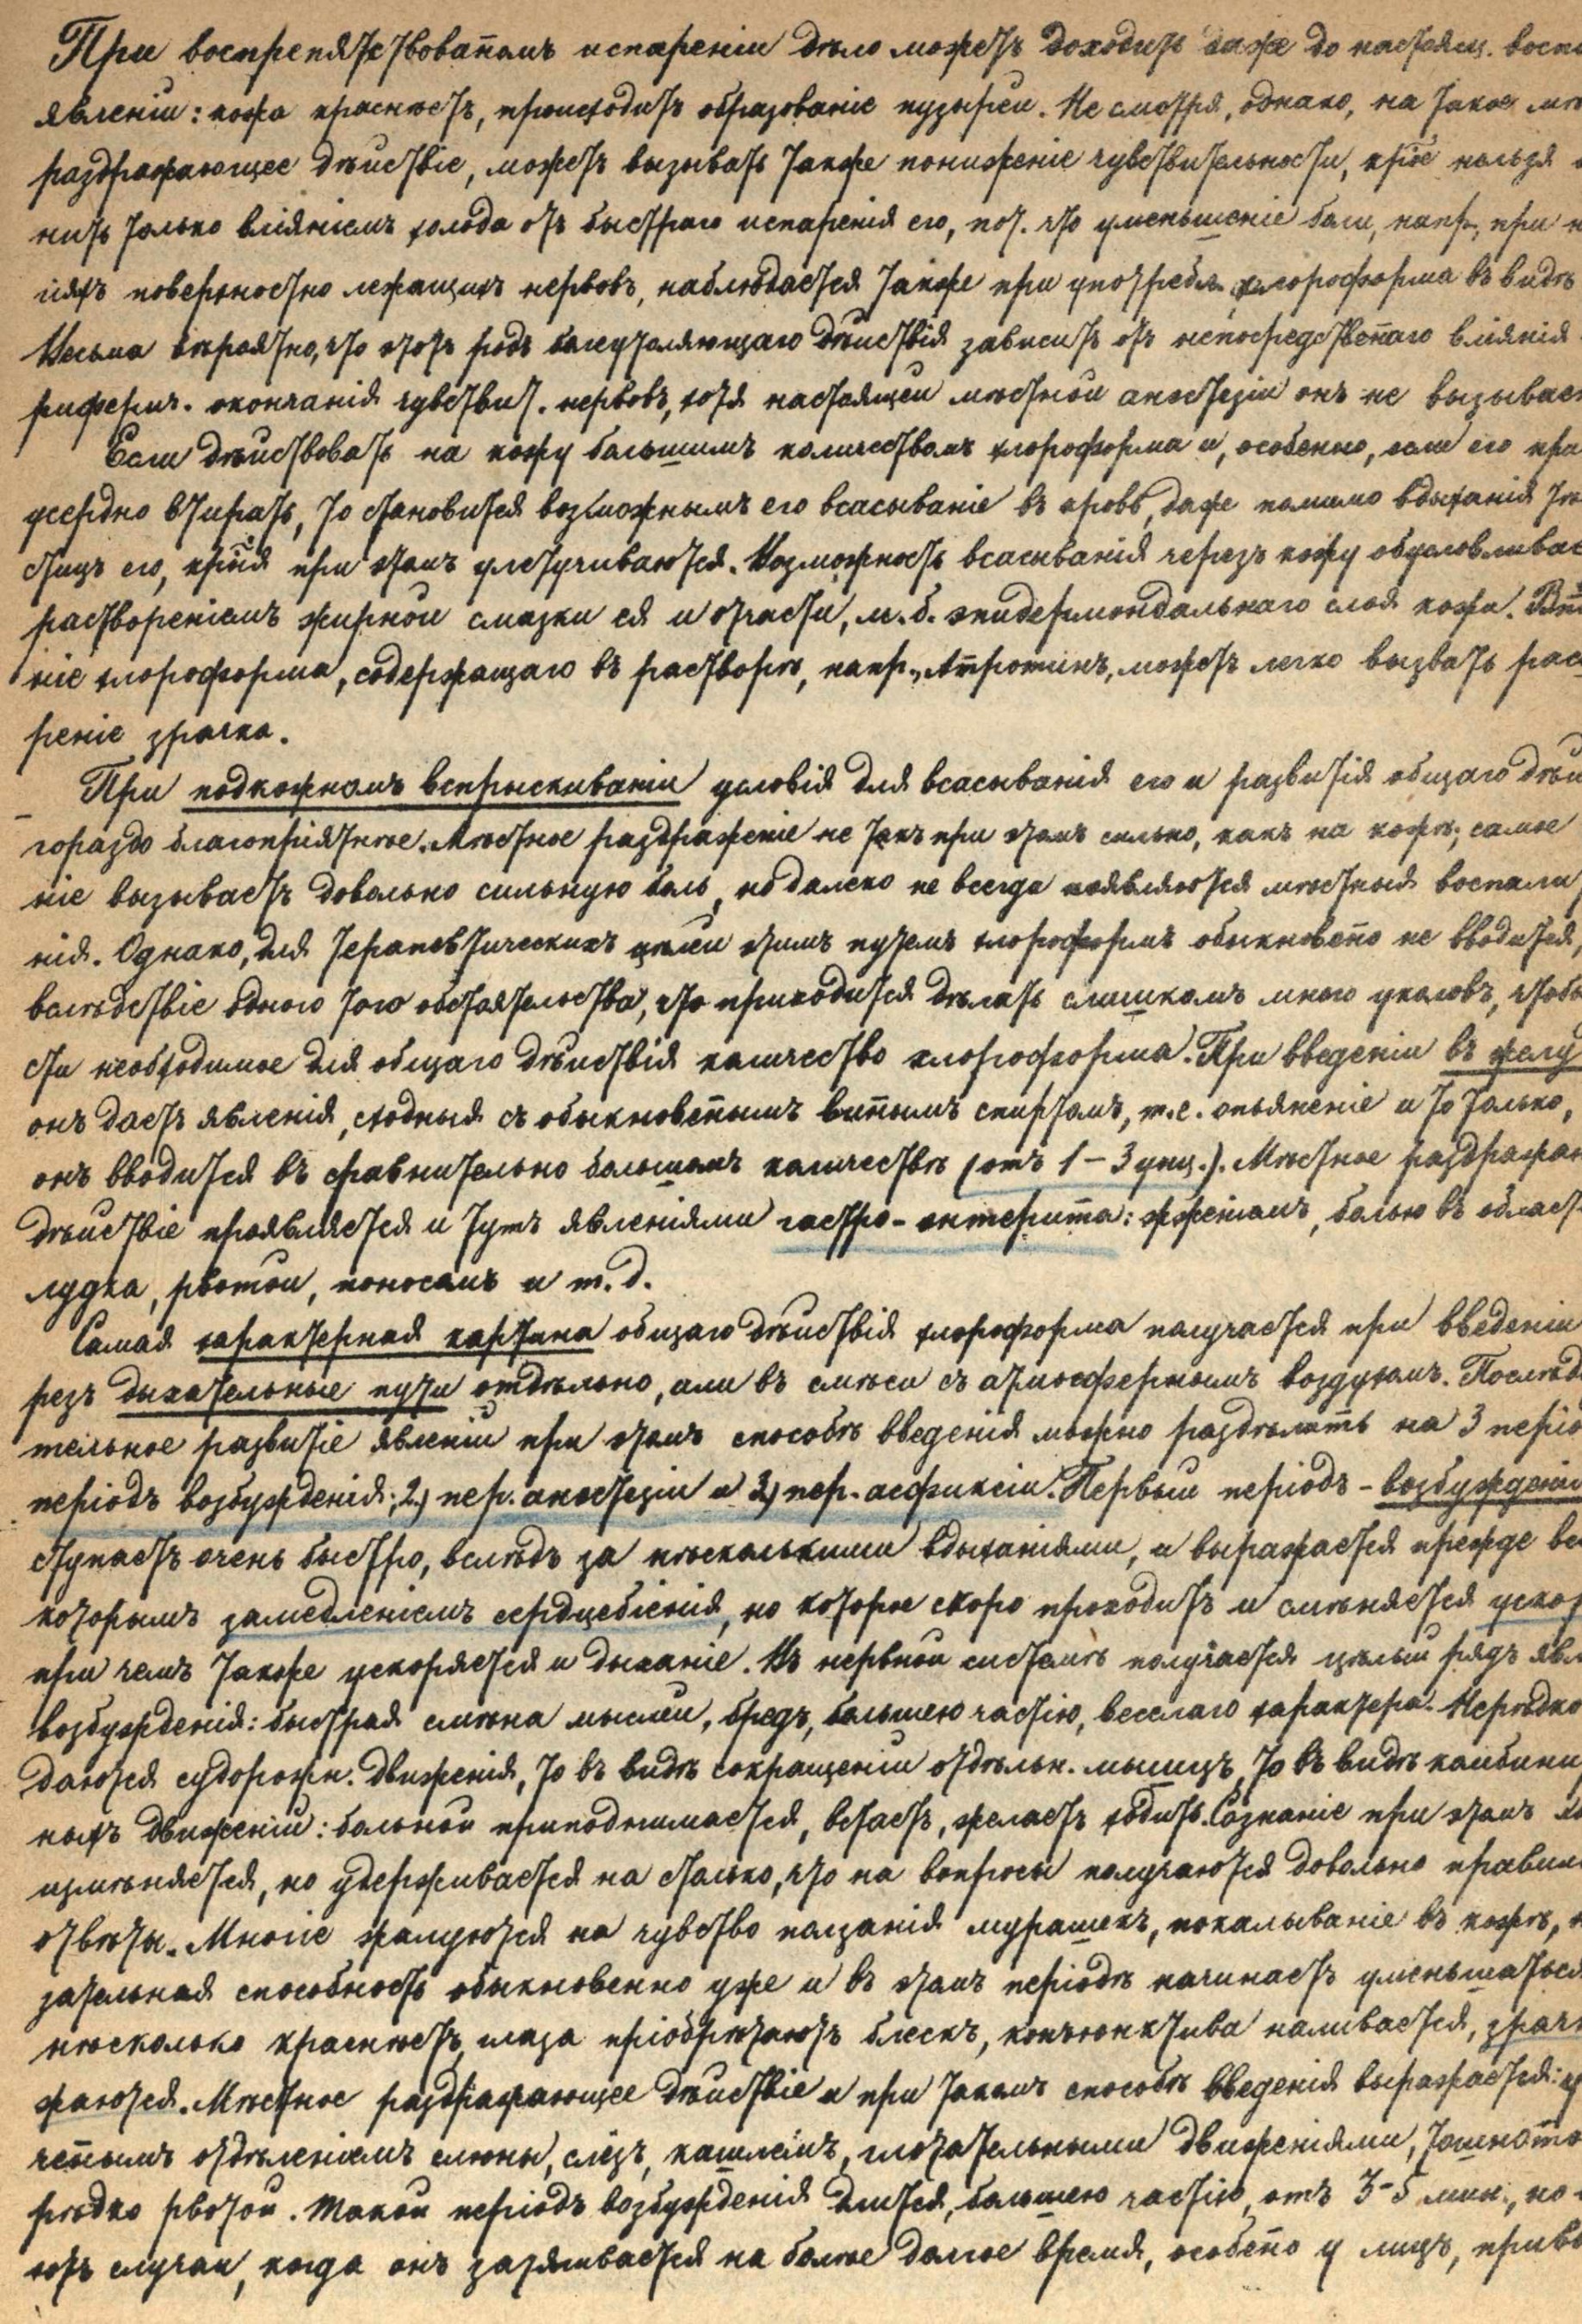 При воспрепятствованномъ испареніи дѣло можетъ доходить даже до настоящ. воспа
явленій: кожа краснѣетъ, происходитъ образованіе пузырей. Не смотря, однако, на такое мѣ
раздражающее дѣйствіе, можетъ вызывать также пониженіе чувствительности, крое нельзя
нить только вліяніемъ холода отъ быстраго испаренія его, пот. что уменьшеніе боли, напр., при
ніяхъ поверхностно лежащихъ нервовъ, наблюдается также при употребл. хлороформа въ видѣ
Весьма вѣроятно, что этотъ родъ болеутоляющаго дѣйствія зависитъ отъ непосредственнаго вліянія
риферич. окончанія чувствит. нервовъ, хотя настоящей мѣстной анестезіи онъ не вызывает
Если дѣйствовать на кожу большимъ количествомъ хлороформа и, особенно, если его при
усердно втирать, то становится возможнымъ его всасываніе въ кровь, даже помимо вдыханія тѣ
стицъ его, крыя при этомъ улетучиваются. Возможность всасыванія черезъ кожу обусловливае
раствореніемъ жирной смазки ея и отчасти, м. б. эпидермоидальнаго слоя кожи. Вти
ніе хлороформа, содержащаго въ растворѣ, напр., Атропинъ, можетъ легко вызвать рас
реніе зрачка.
При подкожномъ вспрыскиваніи условія для всасыванія его и развитія общаго дѣй
гораздо благопріятнѣе. Мѣстное раздраженіе не такъ при этомъ сильно, какъ на кожѣ; самое
ніе вызываетъ довольно сильную боль, но далеко не всегда появляются мѣстныя воспали
нія. Однако, для терапевтическихъ цѣлей этимъ путемъ хлороформъ обыкновенно не вводится,
вслѣдствіе одного того обстоятельства, что приходится дѣлать слишкомъ много уколовъ, чтобы
сти необходимое для общаго дѣйствія количество хлороформа. При введеніи въ желу
онъ даетъ явленія, сходныя съ обыкновеннымъ виннымъ спиртомъ, т.е. опьяненіе и то только,
онъ вводится въ сравнительно большомъ количествѣ (отъ 1 – 3 унц.). Мѣстное раздражаю
дѣйствіе проявляется и тутъ явленіями гастро-энтерита: жженіемъ, болью въ област
лудка, рвотой, поносомъ и т. д.
Самая характерная картина общаго дѣйствія хлороформа получается при введеніи
резъ дыхательные пути отдѣльно, или въ смѣси съ атмосфернымъ воздухомъ. Послѣдо
тельное развитіе явленій при этомъ способѣ введенія можно раздѣлить на 3 періо
періодъ возбужденія; 2) пер. анестезіи и 3) пер. асфиксіи. Первый періодъ – возбужденія
ступаетъ очень быстро, вслѣдъ за нѣсколькими вдыханіями, и выражается прежде все
которымъ замедленіемъ сердцебіенія, но которое скоро проходитъ и смѣняется ускор
при чемъ также ускоряется и дыханіе. Въ нервной системѣ получается цѣлый рядъ явл
возбужденія: быстрая смѣна мыслей, бредъ, большею частію, веселаго характера. Нерѣдко
даются судорожн. движенія, то въ видѣ сокращеній отдѣльн. мышцъ, то въ видѣ комбини
ныхъ движеній: больной приподнимается, встаетъ, желаетъ ходить. Сознаніе при этомъ хо
измѣняется, но удерживается на столько, что на вопросы получаются довольно правил
отвѣты. Многіе жалуются на чувство ползанія мурашекъ, покалываніе въ кожѣ, о
зательная способность обыкновенно уже и въ этомъ періодѣ начинаетъ уменьшаться
нѣсколько краснѣетъ, глаза пріобрѣтаютъ блескъ, конъюнктива наливается, зрачк
жаются. Мѣстное раздражающее дѣйствіе и при такомъ способѣ введенія выражается: у
ченнымъ отдѣленіемъ слюны, слезъ, кашлемъ, глотательными движеніями, тошното
рѣдко рвотой. Такой періодъ возбужденія длится, большею частію, отъ 3–5 мин., но
ютъ случаи, когда онъ затягивается на болѣе долгое время, особенно у лицъ, привы